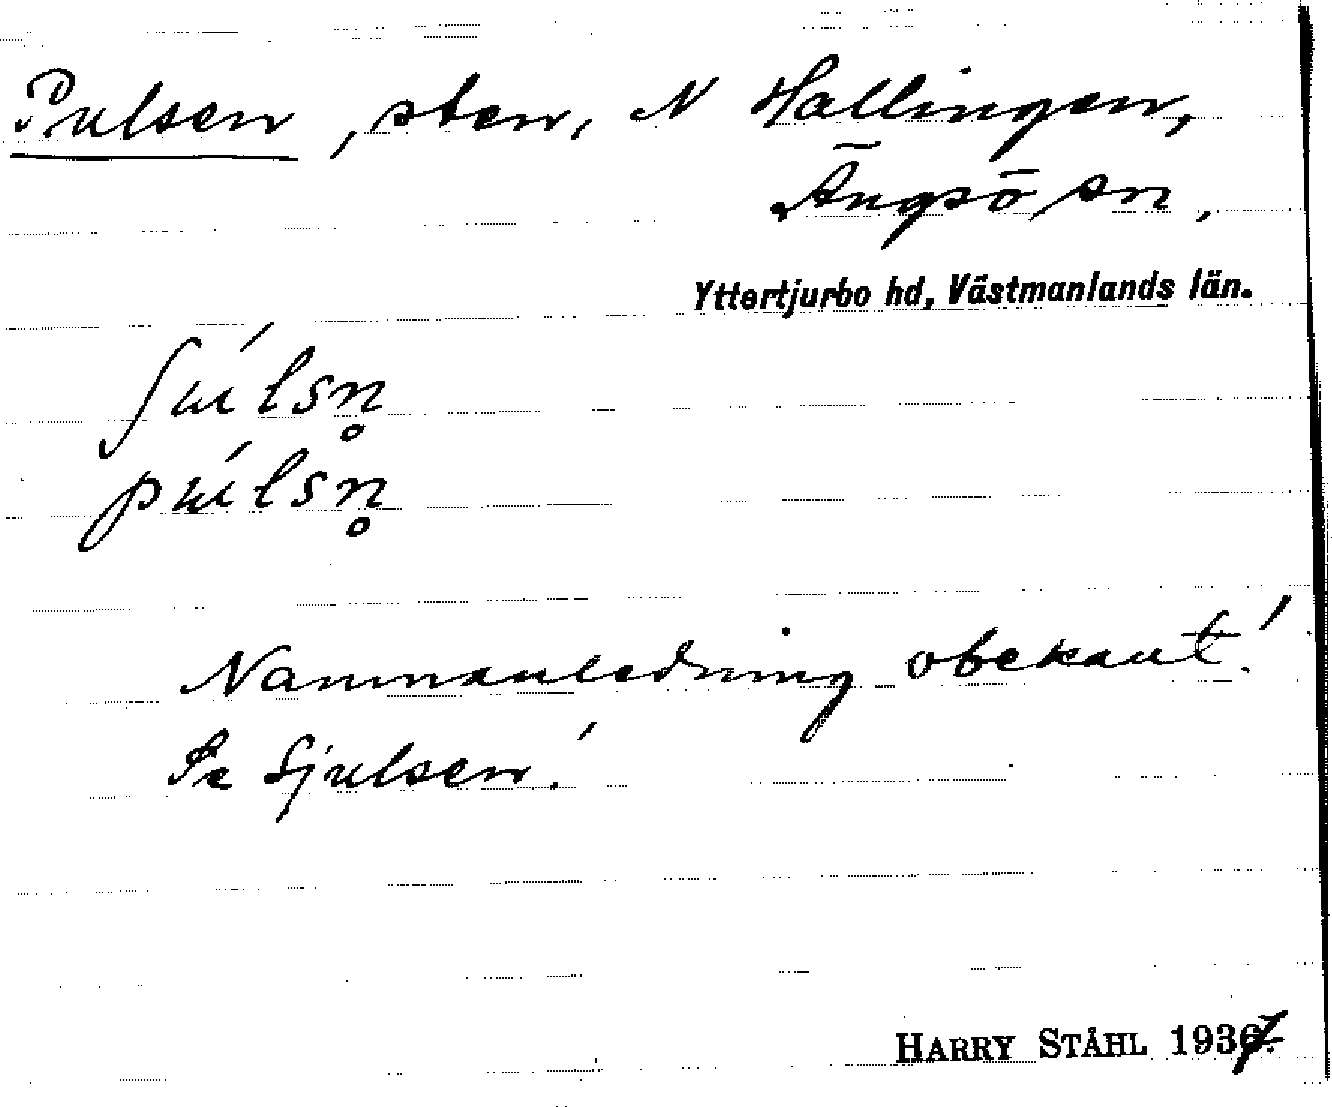 Pulsen, sten, N Hallingen,
Ängsö sn,
Yttertjurbo hd, Västmanlands län.
ʃúlsn̥
púlsn̥
Namnanledning obekant!
Se Sjulsen!
HARRY STÅHL 1937.